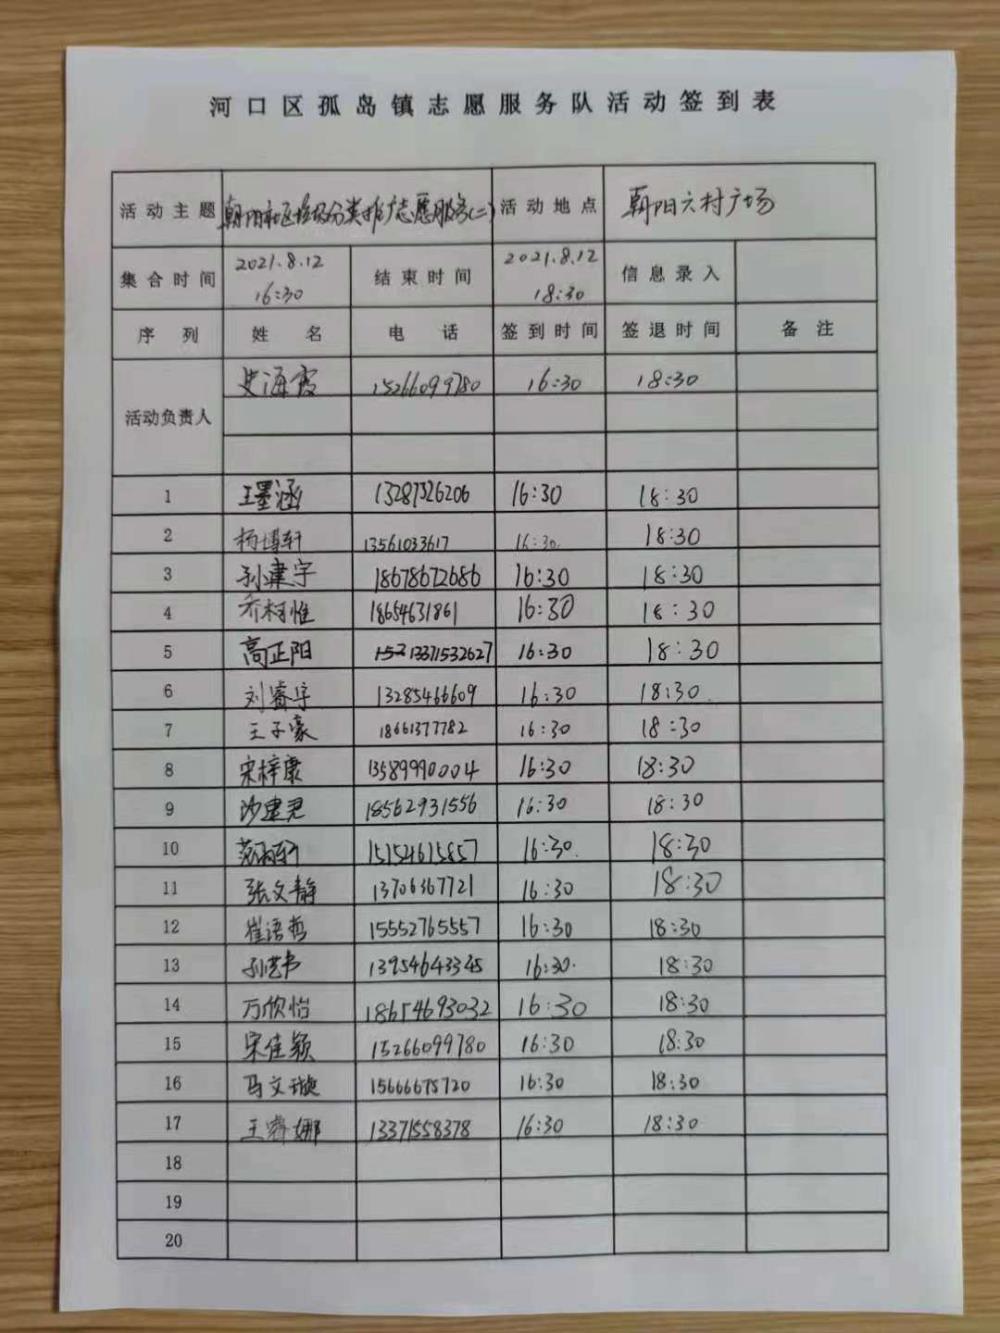 河口区孤岛镇志愿服务队活动签到表
活动主题 朝阳社区垃圾分类推广志愿服务(二) 活动地点 朝阳六村广场
集合时间 2021.8.12 16:30 结束时间 2021.8.12 18:30 信息录入
序列 姓名 电话 签到时间 签退时间 备注
活动负责人 史海霞 15266099780 16:30 18:30
1 王墨涵 13287326206 16:30 18:30
2 杨博轩 13561033617 16:30. 18:30
3 孙建宇 18678672686 16:30 18:30
4 乔柯惟 18654631861 16:30 18:30
5 高正阳 13371532627 16:30 18:30
6 刘睿宇 13285466609 16:30 18:30.
7 王子豪 18661377782 16:30 18:30
8 宋梓康 13589990004 16:30 18:30
9 沙建君 18562931556 16:30 18:30
10 15154615857 16:30. 18:30
11 张文静 13706367721 16:30 18:30
12 崔语哲 15552765557 16:30 18:30
13 孙艺韦 13954643345 16:30. 18:30
14 万欣怡 18654693032 16:30 18:30
15 宋佳颖 15266099780 16:30 18:30
16 马文璇 15666675720 16:30 18:30
17 王睿娜 13371558378 16:30 18:30
18
19
20